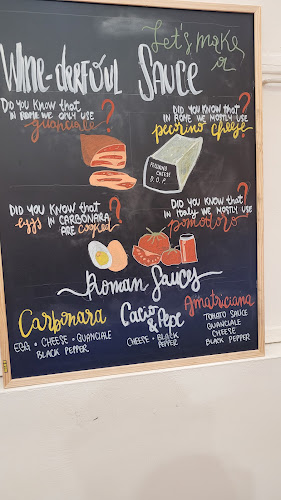 Let's make
a
WINE-DERFOUL SAUCE
DO YOU KNOW THAT
IN ROME WE ONLY USE
guanciale?
DID YOU KNOW THAT
IN ROME WE MOSTLY USE
pecorino cheese?
PECORINO
CHEESE
D.O.P.
DID YOU KNOW THAT
eggs IN CARBONARA
ARE cooked?
DID YOU KNOW THAT
IN ITALY WE MOSTLY USE
pomodoro?
Roman Sauces
Carbonara
EGG • CHEESE • GUANCIALE
BLACK PEPPER
Cacio
& Pepe
CHEESE • BLACK
PEPPER
Amatriciana
TOMATO SAUCE
GUANCIALE
CHEESE
BLACK PEPPER